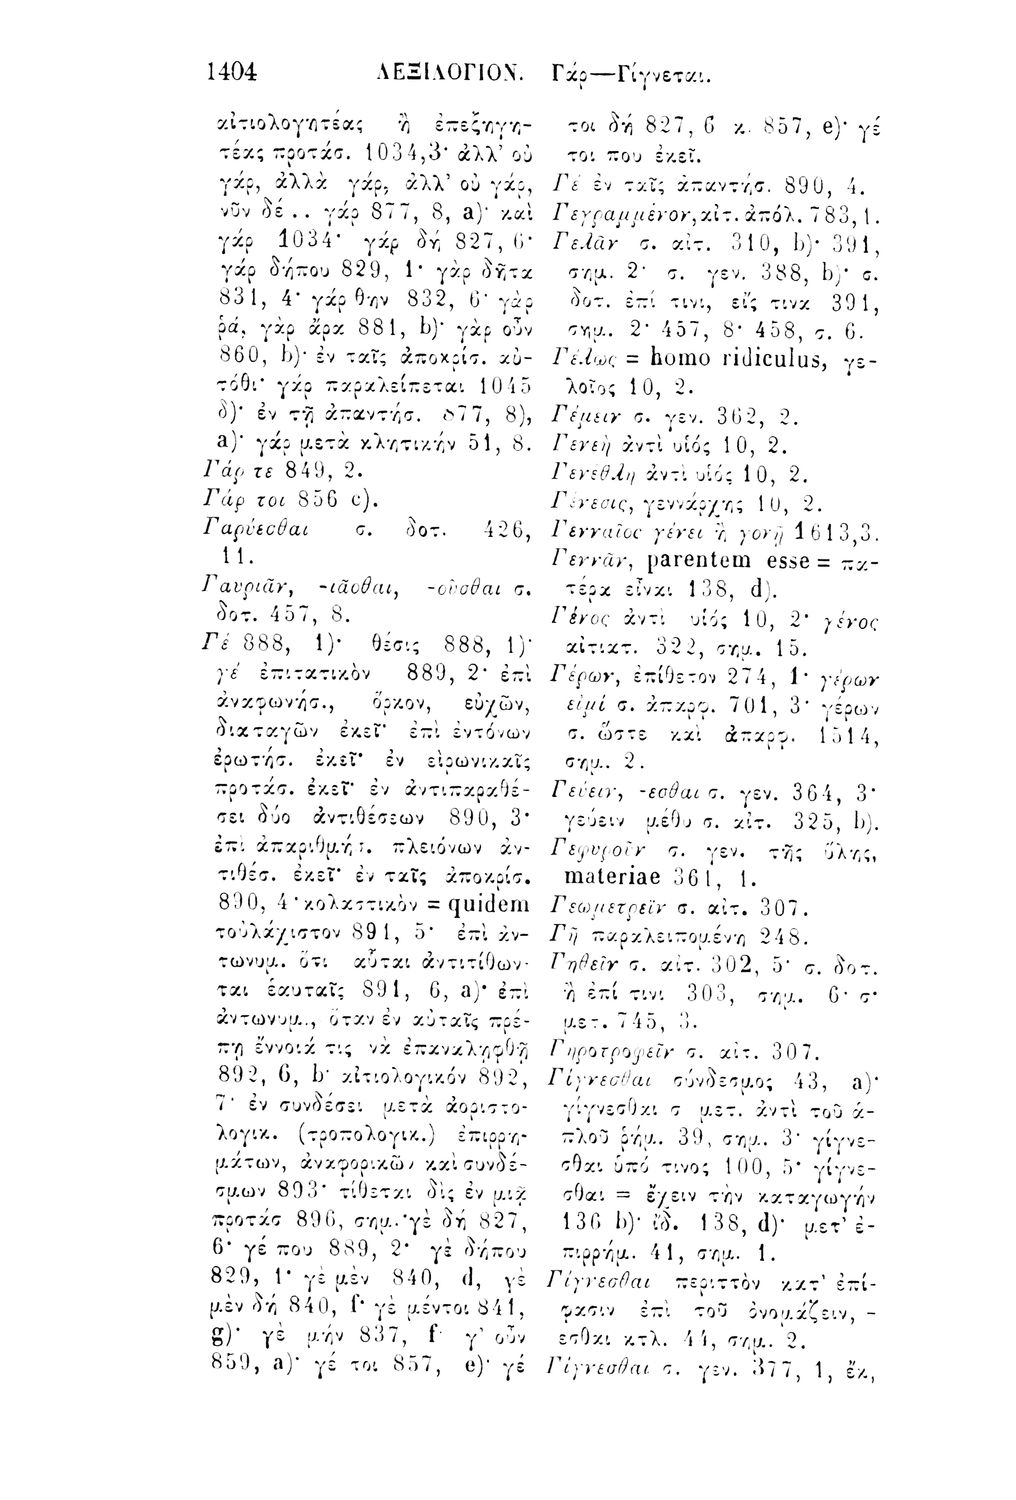 1404 ΛΕΞΙΛΟΓΙΟΝ. Γάρ—Γίγνεται.
αἰτιολογητέας ἢ ἐπεξηγη-
τέας προτάσ. 1034,3· ἀλλ' οὐ
γάρ, ἀλλὰ γάρ, ἀλλ' οὐ γάρ,
νῦν δέ .. γάρ 877, 8, a)· καὶ
γάρ 1034· γάρ δή 827, 6·
γάρ δήπου 829, 1· γὰρ δῆτα
831, 4· γάρ θην 832, 6· γὰρ
ῥά, γὰρ ἄρα 881, b)· γὰρ οὖν
860, b)· ἐν ταῖς ἀποκρίσ. αὐ-
τόθι· γάρ παραλείπεται 1045
δ)· ἐν τῇ ἀπαντήσ. 877, 8),
a)· γάρ μετὰ κλητικήν 51, 8.
Γάρ τε 849, 2.
Γάρ τοι 856 c).
Γαρύεσθαι σ. δοτ. 426,
11.
Γαυριᾶν, -ιᾶσθαι, -οῦσθαι σ.
δοτ. 457, 8.
Γέ 888, 1)· θέσις 888, 1)·
γέ ἐπιτατικὸν 889, 2· ἐπὶ
ἀναφωνήσ., ὅρκον, εὐχῶν,
διαταγῶν ἐκεῖ· ἐπὶ ἐντόνων
ἐρωτήσ. ἐκεῖ· ἐν εἰρωνικαῖς
προτάσ. ἐκεῖ· ἐν ἀντιπαραθέ-
σει δύο ἀντιθέσεων 890, 3·
ἐπὶ ἀπαριθμήσ. πλειόνων ἀν-
τιθέσ. ἐκεῖ· ἐν ταῖς ἀποκρίσ.
890, 4· κολαστικὸν = quidem
τοὐλάχιστον 891, 5· ἐπὶ ἀν-
τωνυμ. ὅτι αὗται ἀντιτίθων-
ται ἑαυταῖς 891, 6, a)· ἐπὶ
ἀντωνυμ., ὅταν ἐν αὐταῖς πρέ-
πῃ ἔννοιά τις νὰ ἐπαναληφθῇ
892, 6, b· αἰτιολογικόν 892,
7· ἐν συνδέσει μετὰ ἀοριστο-
λογικ. (τροπολογικ.) ἐπιρρη-
μάτων, ἀναφορικῶν καὶ συνδέ-
σμων 893· τίθεται δὶς ἐν μιᾷ
προτάσ 896, σημ.· γὲ δή 827,
6· γέ που 889, 2· γὲ δήπου
829, 1· γὲ μὲν 840, d, γὲ
μὲν δή 840, f· γὲ μέντοι 841,
g)· γὲ μήν 837, f· γ' οὖν
859, a)· γέ τοι 857, e)· γέ
τοι δή 827, 6 κ. 857, e)· γέ
τοι που ἐκεῖ.
Γέ ἐν ταῖς ἀπαντήσ. 890, 4.
Γεγραμμένον, αἰτ. ἀπόλ. 783,1.
Γελᾶν σ. αἰτ. 310, b)· 391,
σημ. 2· σ. γεν. 388, b)· σ.
δοτ. ἐπί τινι, εἴς τινα 391,
σημ. 2· 457, 8· 458, σ. 6.
Γέλως = homo ridiculus, γε-
λοῖος 10, 2.
Γέμειν σ. γεν. 362, 2.
Γενεὴ ἀντὶ υἱός 10, 2.
Γενέθλη ἀντὶ υἱός 10, 2.
Γένεσις, γεννάρχης 10, 2.
Γενναῖος γένει ἢ γονῇ 1613,3.
Γεννᾶν, parentem esse = πα-
τέρα εἶναι 138, d).
Γένος ἀντὶ υἱός 10, 2· γένος
αἰτιατ. 322, σημ. 15.
Γέρων, ἐπίθετον 274, 1· γέρων
εἰμί σ. ἀπαρφ. 701, 3· γέρων
σ. ὥστε καὶ ἀπαρφ. 1514,
σημ. 2.
Γεύειν, -εσθαι σ. γεν. 364, 3·
γεύειν μέθυ σ. αἰτ. 325, b).
Γεφυροῦν σ. γεν. τῆς ὕλης,
materiae 361, 1.
Γεωμετρεῖν σ. αἰτ. 307.
Γῆ παραλειπομένη 248.
Γηθεῖν σ. αἰτ. 302, 5· σ. δοτ.
ἢ ἐπί τινι 303, σημ. 6· σ·
μετ. 745, 3.
Γηροτροφεῖν σ. αἰτ. 307.
Γίγνεσθαι σύνδεσμος 43, a)·
γίγνεσθαι σ μετ. ἀντὶ τοῦ ἁ-
πλοῦ ῥήμ. 39, σημ. 3· γίγνε-
σθαι ὑπό τινος 100, 5· γίγνε-
σθαι = ἔχειν τὴν καταγωγήν
136 b)· ἰδ. 138, d)· μετ' ἐ-
πιρρήμ. 41, σημ. 1.
Γίγνεσθαι περιττὸν κατ' ἐπί-
φασιν ἐπὶ τοῦ ὀνομάζειν, -
εσθαι κτλ. 44, σημ. 2.
Γίγνεσθαι σ. γεν. 377, 1, ἔκ,